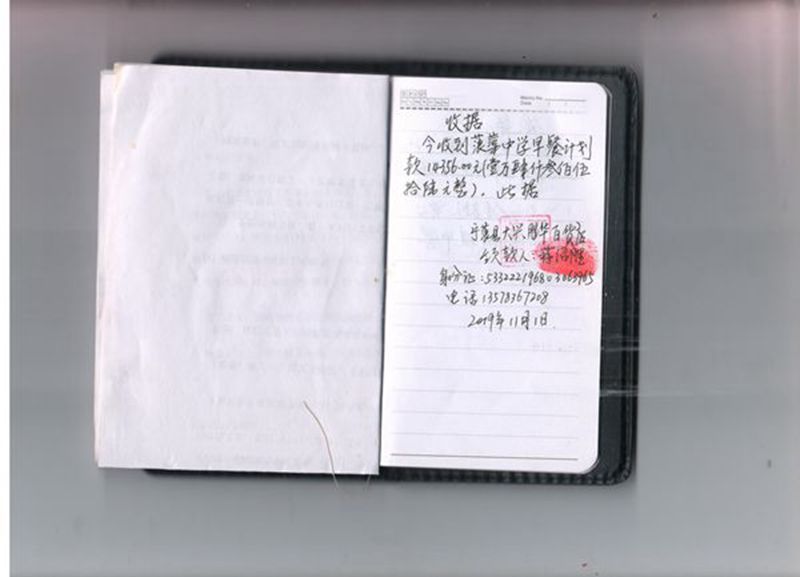 Memo No.
Date / /
收据
今收到菠萝中学早餐计划
款14356.00元(壹万肆仟叁佰伍
拾陆元整)。此据
宁蒗县大兴腾华百货店
领款人:
身份证:533222196803063965
电话13578367208
2019年11月1日